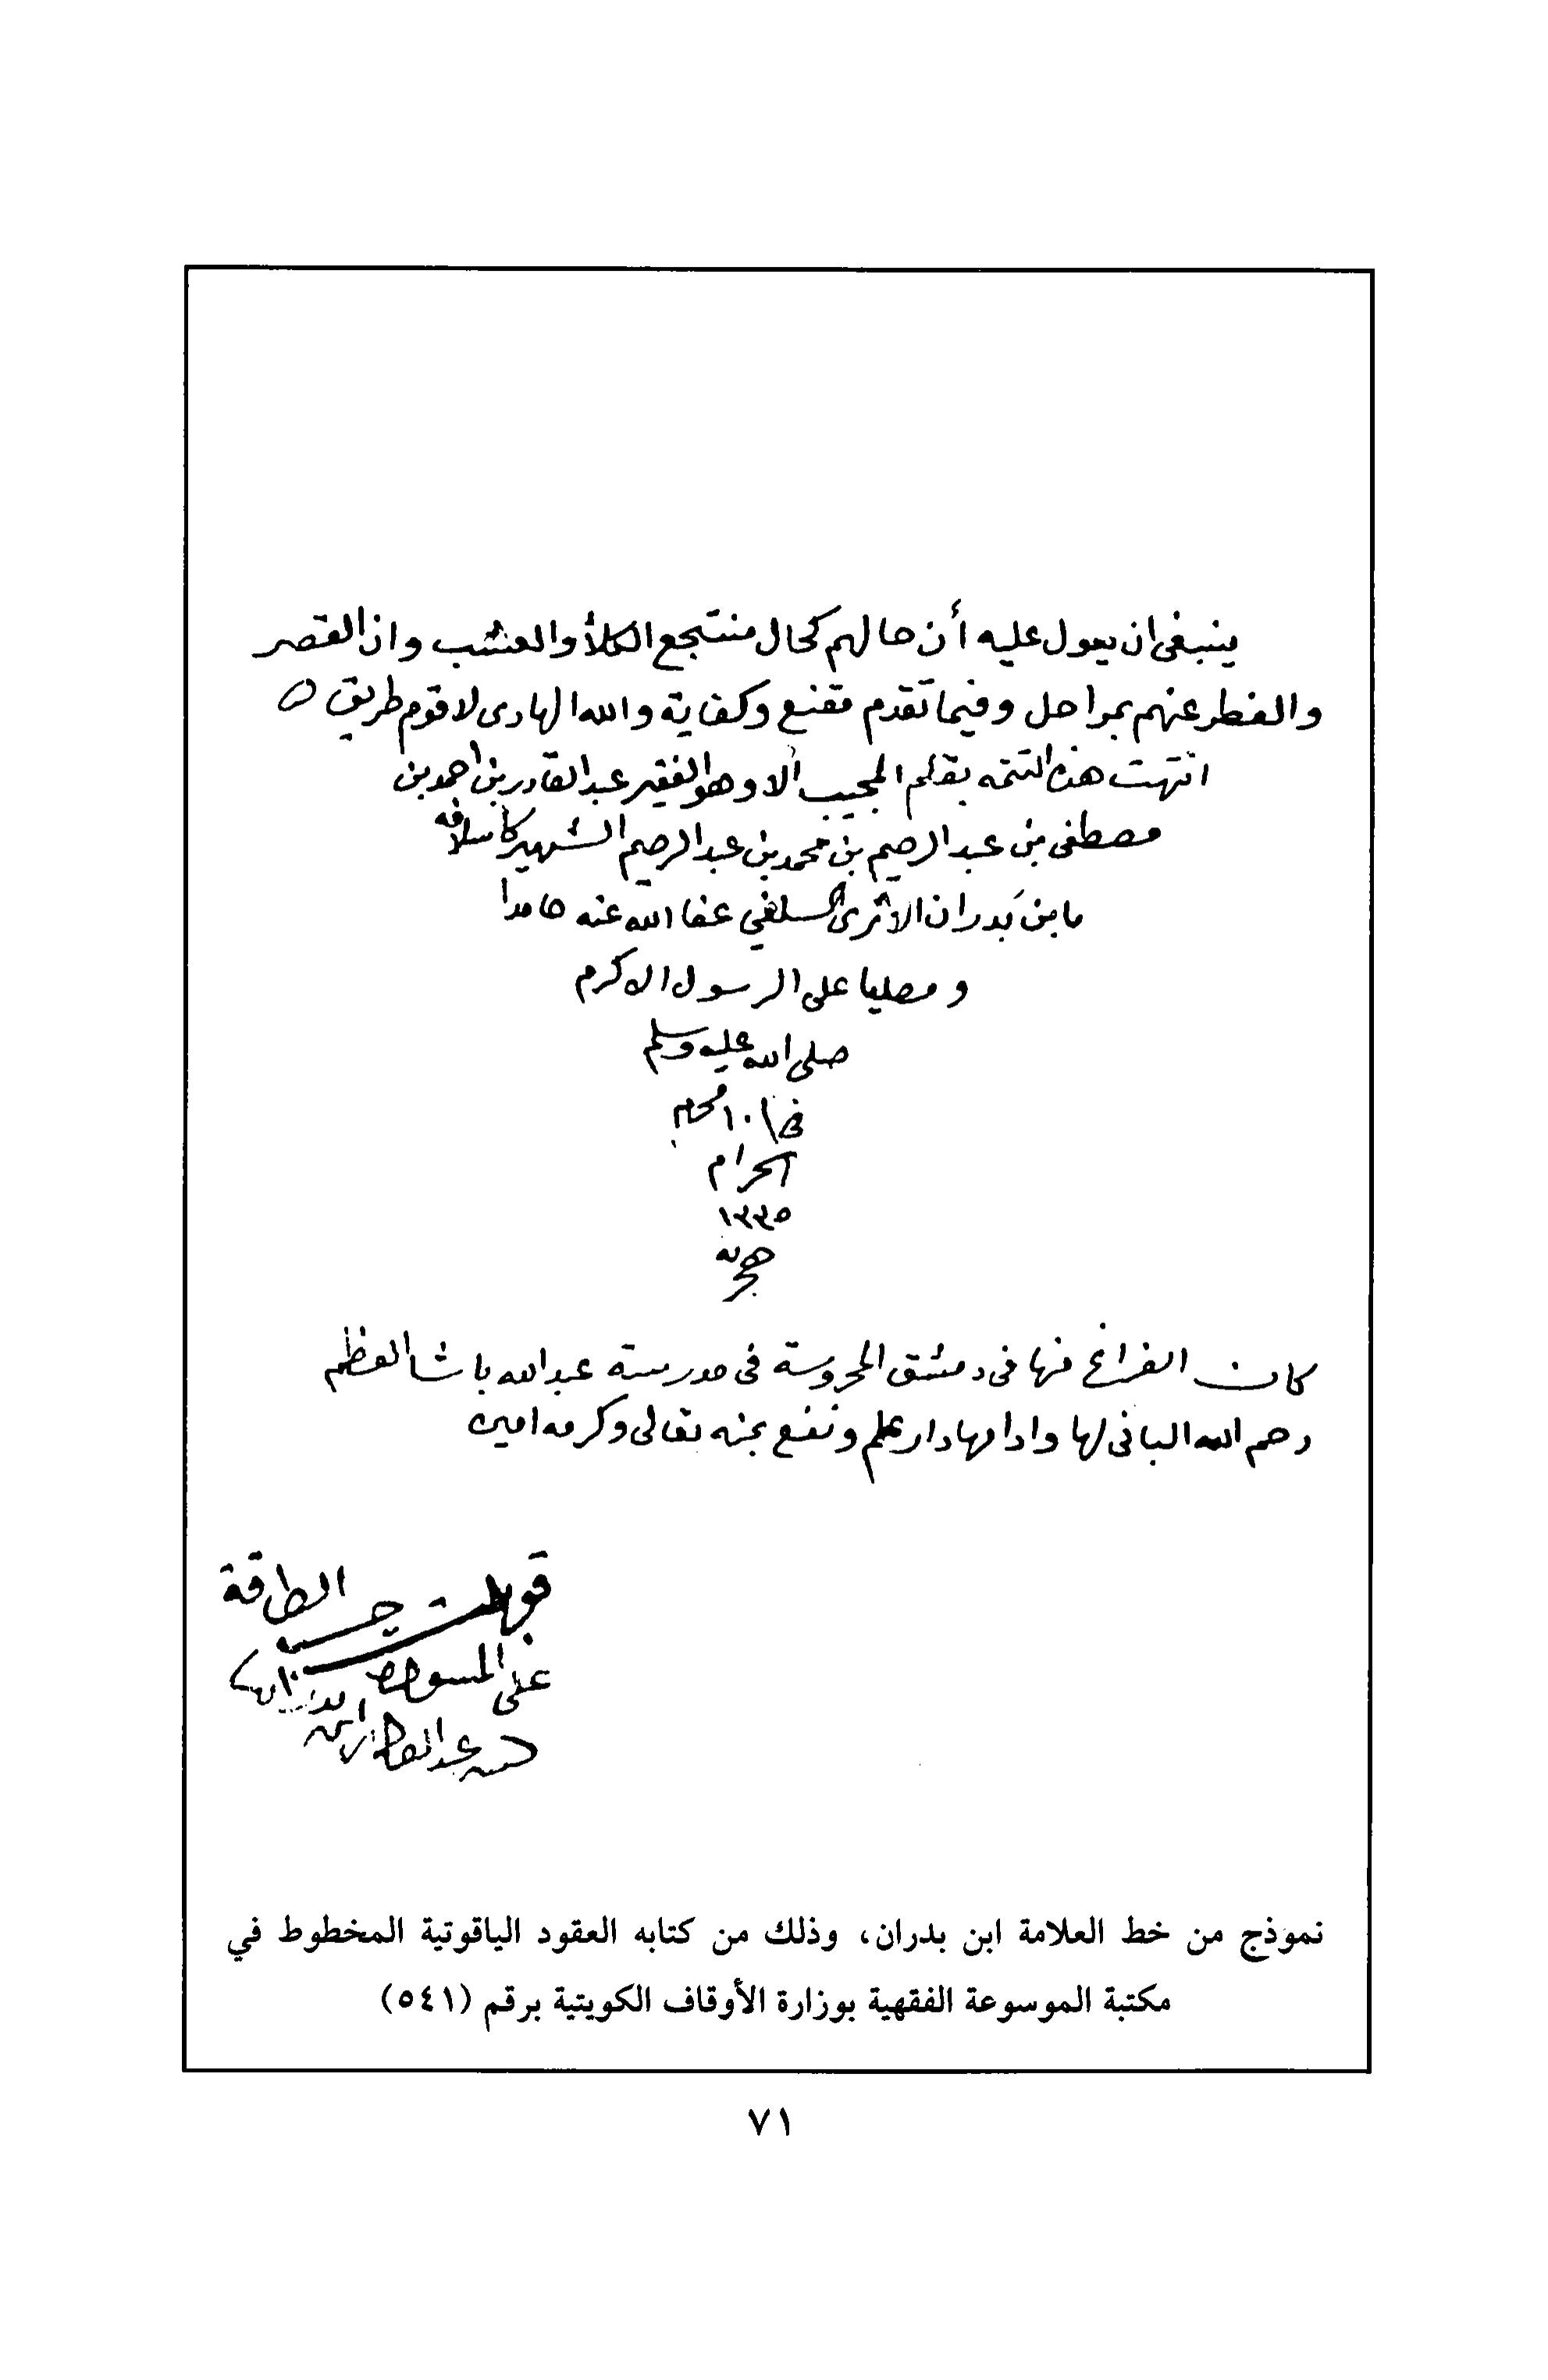 ينبغى ان يعول عليه أن حالهم كحال منتجع الكلأ والعشب وان القصر
والفطر عنهم بمراحل وفيما تقدم مقنع وكفاية والله الهادى لاقوم طريق ه
انتهت هذه التتمه بقلم المجيب ألا وهو الفقير عبد القادر بن احمد بن
مصطفى بن عبد الرحيم بن محمد بن عبد الرحيم الشهير كأسلافه
بابن بدران الاثرى السلفي عفا الله عنه حامدا
ومصليا على الرسول الاكرم
صلى الله عليه وسلم
فى ١٠ محرم
الحرام
١٣٣٥
هجريه
كان الفراغ منها فى دمشق المحروسة فى مدرسة عبد الله باشا العظم
رحم الله البانى لها وادامها دار علم ونفع بمنه تعالى وكرمه امين
قوبلت حسب الطاقة
على المسودة
عبد القادر ابن بدران
نموذج من خط العلامة ابن بدران، وذلك من كتابه العقود الياقوتية المخطوط في
مكتبة الموسوعة الفقهية بوزارة الأوقاف الكويتية برقم (٥٤١)
٧١